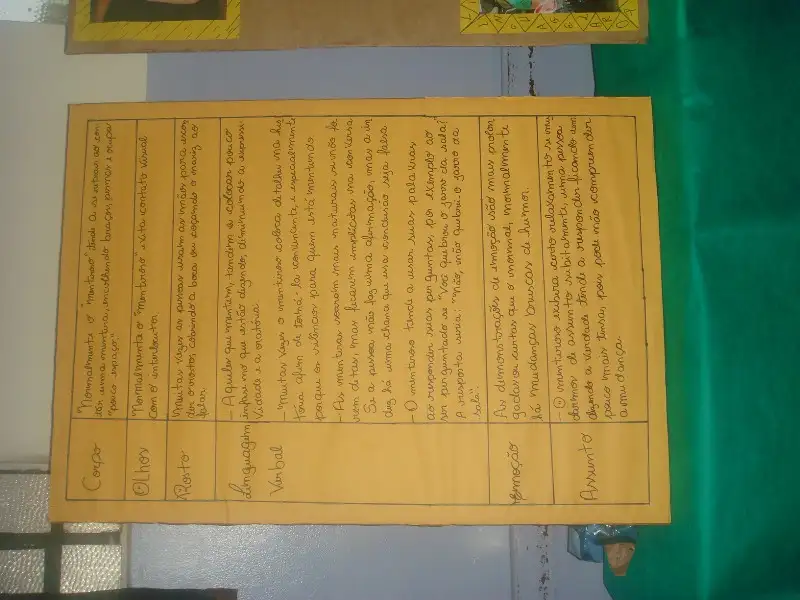 Corpo
"Normalmente o "mentiroso" tende a se retrair ao con
tar uma mentira, encolhendo braços, pernas e ocupar
"pouco espaço"
Olhos
"Normalmente o "mentiroso" evita contato visual
com o interlocutor
Rosto
Muitas vezes as pessoas usam as mãos para escon
der o rosto, cobrindo a boca ou coçando o nariz ao
falar
Linguagem
Verbal
- Aqueles que mentem, tendem a colocar pouco
no que estão dizendo, diminuindo a expressi
vidade e a oratória
- Muitas vezes o mentiroso cobra detalhes na his
tória afim de torná-la convincente e especialmente
porque os silêncios para quem está mentindo
- As mentiras soarem mais naturais se não fo
rem ditas, mas ficarem implícitas na conversa
Se a pessoa não faz uma afirmação, mas a in
duz há uma chance que essa conclusão seja falsa
- O mentiroso tende a usar suas palavras
ao responder suas perguntas, por exemplo ao
ser perguntado se "Você quebrou o jarro da sala?
A resposta seria: "Não, não quebrei o jarro da
sala".
Emoção
As demonstrações de emoção são mais prolon
gadas ou curtas que o normal, normalmente
há mudanças bruscas de humor.
Assunto
- O mentiroso exibira certo relaxamento se mu
darmos de assunto subitamente, uma pessoa
dizendo a verdade tende a responder ficando um
pouco mais tensa, pois pode não compreender
a mudança.